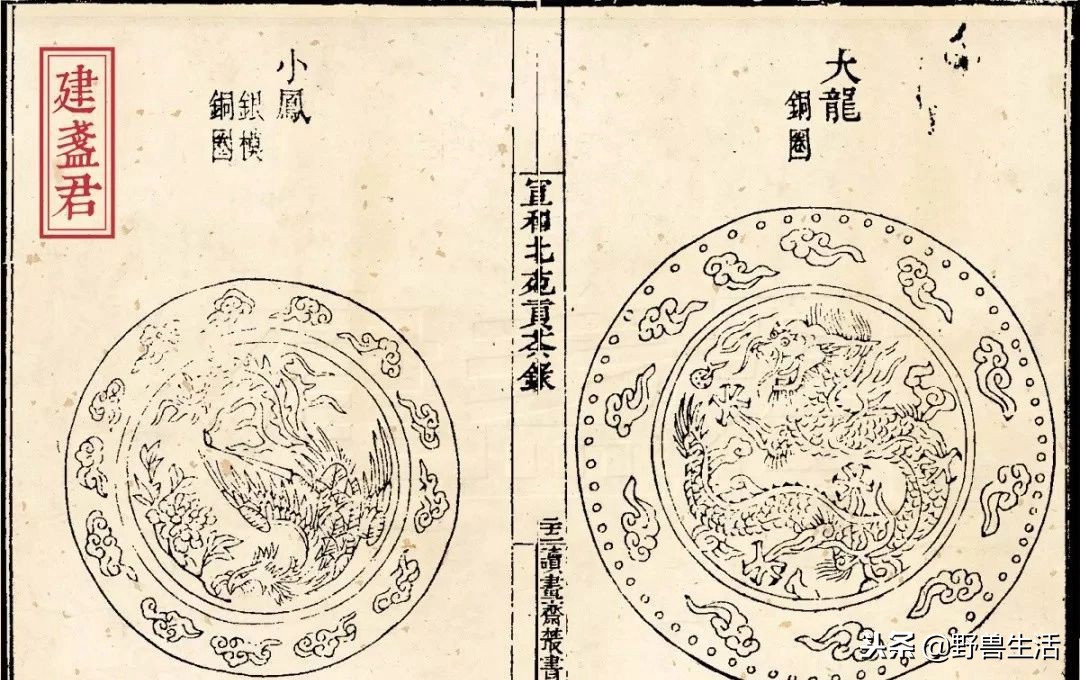 大龍
銅圈
宣和北苑貢茶錄
讀畫齋叢書
小鳳
銀模
銅圈
建盞君
头条 @野兽生活